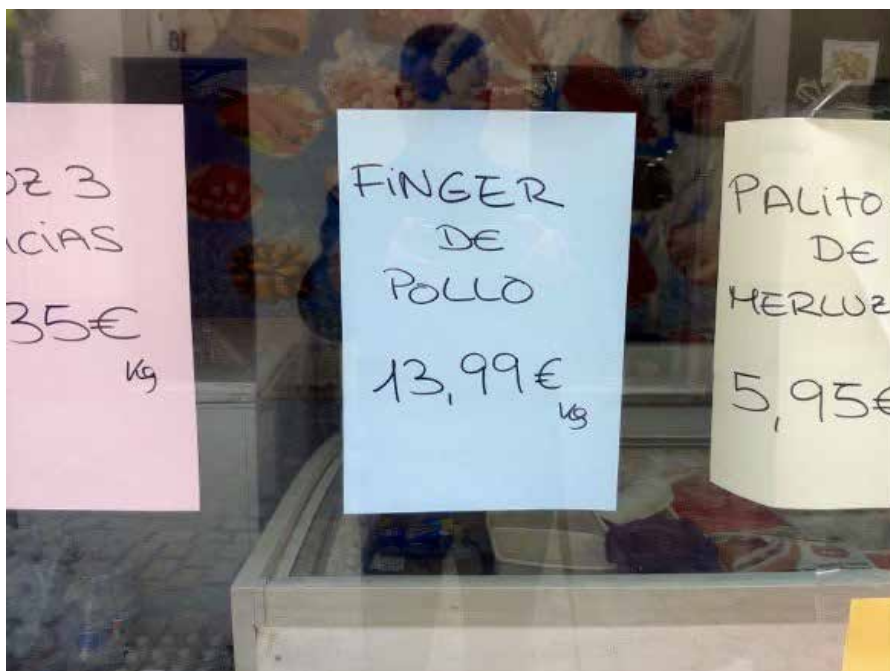 OZ 3
ICIAS
35€
Kg
FINGER
DE
POLLO
13,99€
Kg
PALITO
DE
MERLUZ
5,95€